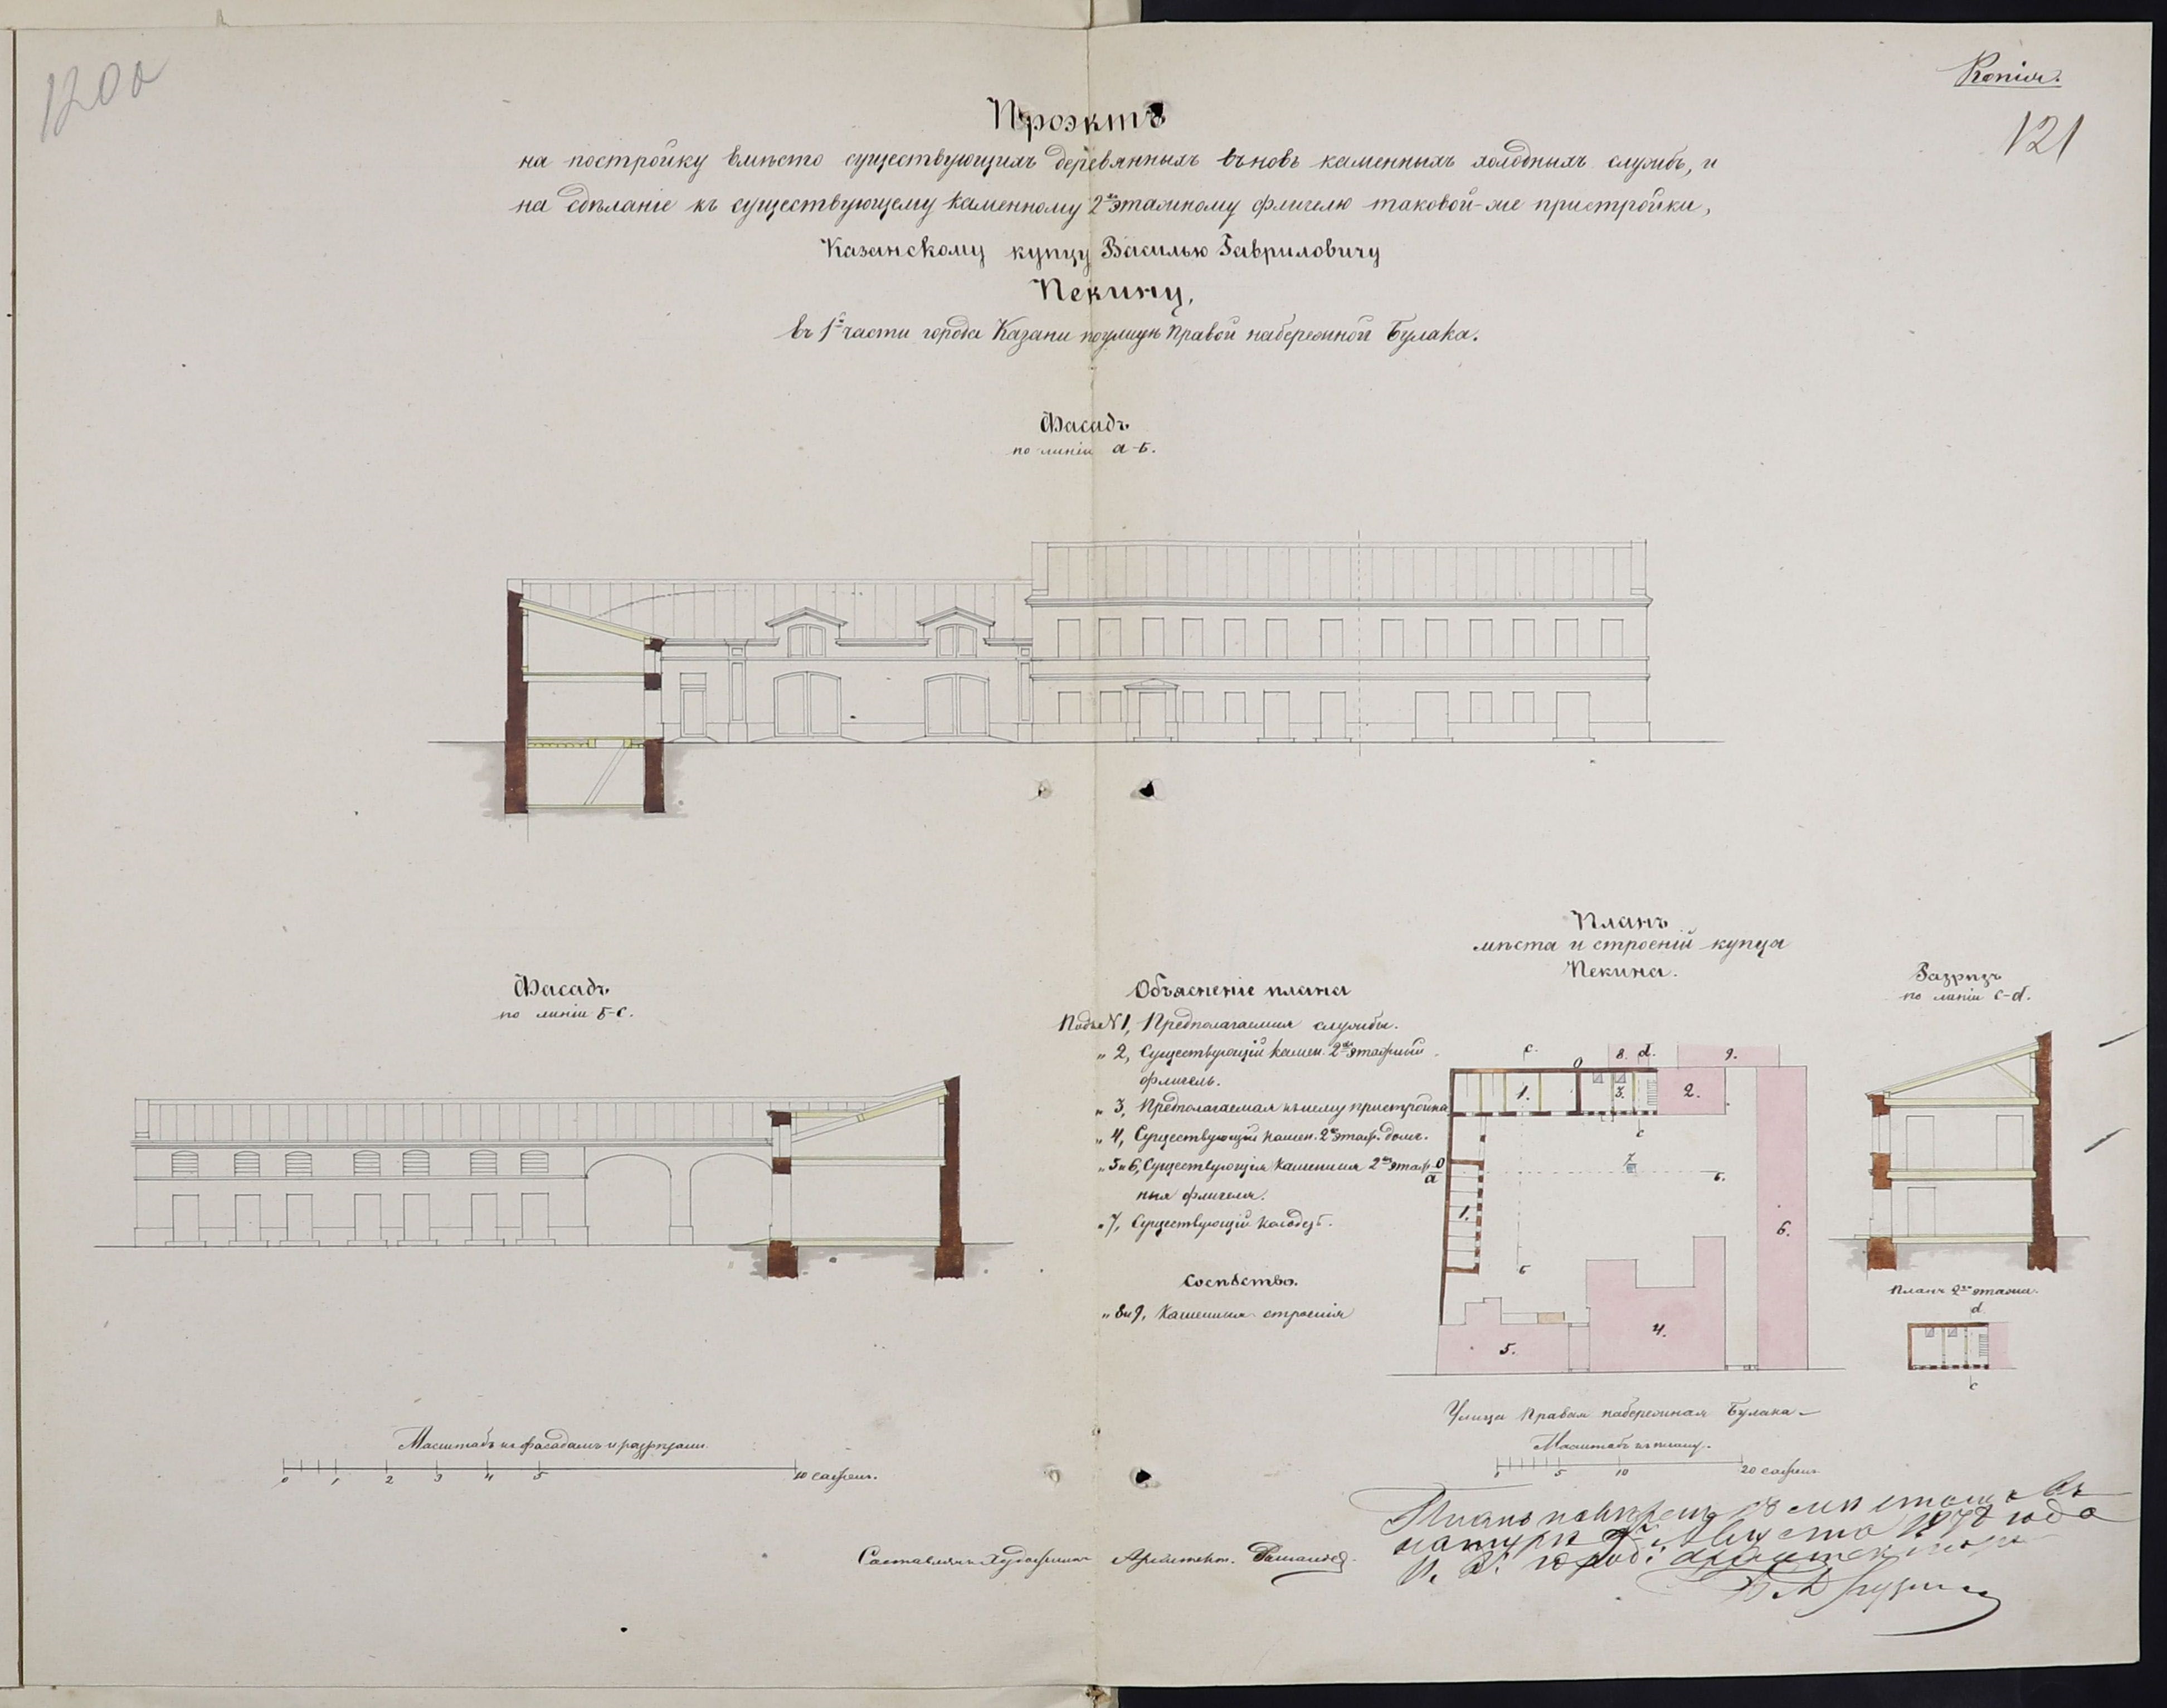 120а
Копія.
121
Проэктъ
на постройку вмѣсто существующихъ деревянныхъ вновь каменныхъ холодныхъ службъ, и
на сдѣланіе къ существующему каменному 2хъ этажному флигелю таковой-же пристройки,
Казанскому купцу Василью Гавриловичу
Пекину,
въ 1й части города Казани по улицѣ Правой набережной Булака.
Фасадъ
по линіи а-б.
Фасадъ
по линіи б-с.
Объясненіе плана
Подъ № 1, Предполагаемыя службы.
" 2, Существующій камен. 2хъ этажный
флигель.
" 3, Предполагаемая къ нему пристройка
" 4, Существующій камен. 2хъ этаж. домъ.
" 5 и 6, Существующія каменныя 2хъ этаж-
ныя флигеля.
" 7, Существующій колодезь.
Сосѣдство.
" 8 и 9, Каменныя строенія
Планъ
мѣста и строеній купца
Пекина.
c. 8. d. 9.
1. 3. 2.
c
a 7. б.
1. 6.
б
4.
5.
Улица Правая набережная Булака
Масштабъ къ плану.
1 5 10 20 сажен.
Разрѣзъ
по линіи c-d.
Планъ 2го этажа.
d
c
Масштабъ къ фасадамъ и разрѣзамъ.
0 1 2 3 4 5 10 сажен.
Составлялъ Художникъ Архитект. Романовъ
Планъ повѣренъ съ мѣстомъ въ
натурѣ Августа 1878 года
И. д. город. архитектора